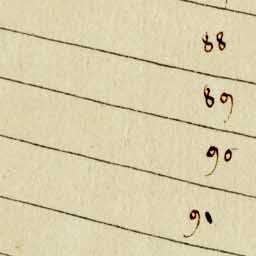 88
89
90
91